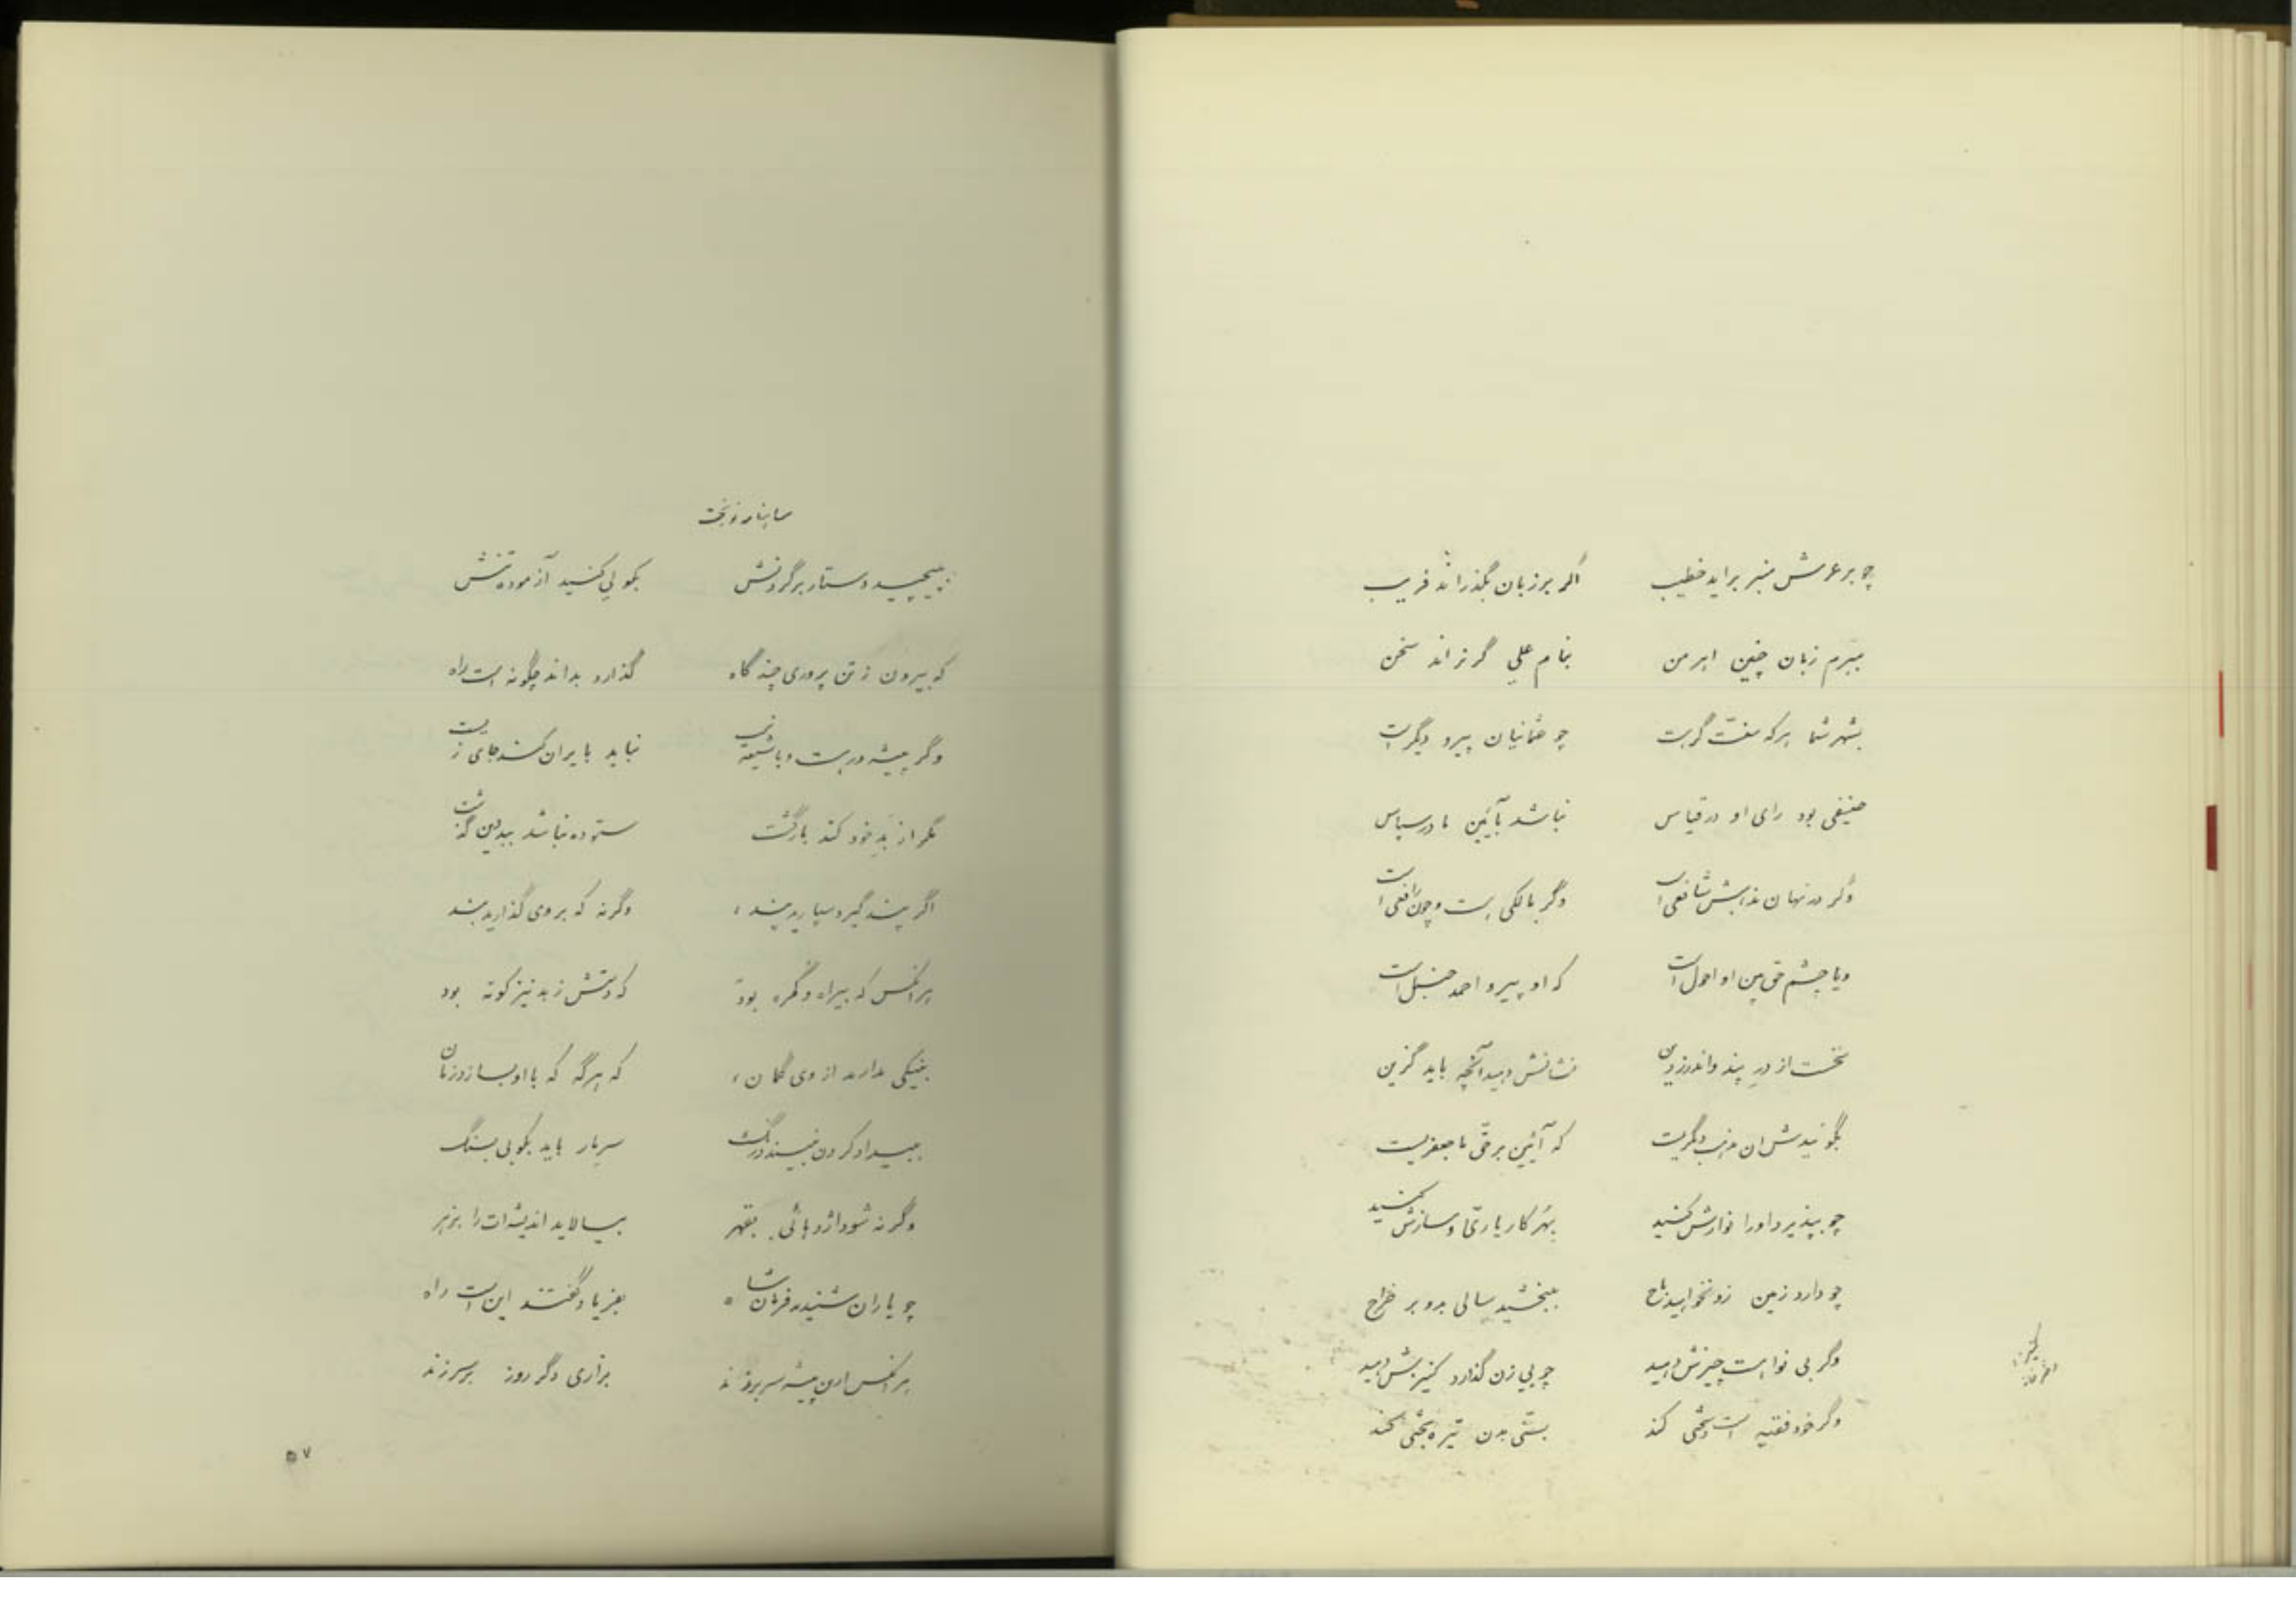 چو بر عرش منبر براید خطیب اگر بر زبان بگذراند فریب
ببرم زبان چنین اهرمن بنام علی گر نراند سخن
بشهر شما هر که سنت گرست چو عثمانیان پیرو دیگرست
حنیفی بود رای او در قیاس نباشد بآئین ما در سپاس
وگر در نهان مذهبش شافعی است وگر مالکی هست و چون رافعی است
ویا چشم حق بین او احول است که او پیرو احمد حنبل است
نخست از در پند و اندرز دین نشانش دهید آنچه باید گزین
بگوئیدش آن مذهب دیگریست که آئین بر حق ما جعفریست
چو بپذیرد او را نوازش کنید بهر کار یاری و سازش کنید
چو دارد زمین زو نخواهید باج ببخشید سالی بدو بر خراج
وگر بی نوا هست چیزش دهید چو بی زن گذارد کنیزش دهید
وگر خود فقیه است و سختی کند بسنّی بدن تیره بختی کند
بپیچید دستار بر گردنش بکوبی کنید آزموده تنش
که بیرون ز تن پروری چند گاه گذارد بداند چگونه است راه
وگر پیشه ور هست و با نباید بایران کند جای زیست
مگر از بد خود کند بازگشت ستوده نباشد ببد دین گذشت
اگر پند گیرد سپارید پند وگرنه که بر وی گذارید بند
هر آنکس که بیراه و گمره بود که دستش ز بد نیز کوته بود
بنیکی مدارید از وی گمان که هرگه که با او بسازد زمان
ببیداد کردن نبیند درنگ سر مار باید بکوبی بسنگ
وگرنه شود اژدهائی بقهر بیالاید اندیشه‌ات را بزهر
چو یاران شنیدند فرمان شاه بفریاد گفتند این است راه
هر آنکس ازین بیشه سر بر زند بزاری دگر روز بر سر زند
۵۷